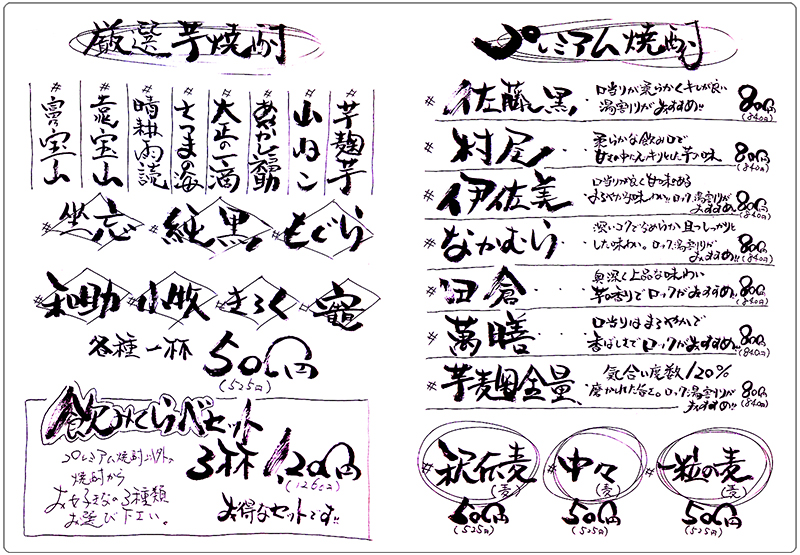 厳選芋焼酎
芋麹芋
山ねこ
あやかし福助
大正の一滴
さつまの海
晴耕雨読
富乃宝山
坐忘
純黒
もぐら
和助
小牧
きろく
竈
各種一杯 500円
(525円)
飲みくらべセット
プレミアム焼酎以外の
焼酎から
お好きな3種類
お選び下さい。
3杯 1,200円
(1260円)
お得なセットです!!
プレミアム焼酎
佐藤 黒 口当りが柔らかくキレが良い
湯割りがおすすめ!! 800円
(840円)
村尾 柔らかな飲み口で
800円
(840円)
伊佐美 口当りが良く甘味ある
まろやかな味わい!!ロック、湯割りが
おすすめ!! 800円
(840円)
なかむら 深いコクでなめらか、且つしっかりと
した味わい。ロック、湯割りが
おすすめ!! 800円
(840円)
田倉 奥深く上品な味わい
芋の香りでロックがおすすめ!! 800円
(840円)
萬膳 口当りはまろやかで
香ばしさでロックがおすすめ!! 800円
(840円)
気合い度数120%
磨かれた旨さ。ロック、湯割りが
おすすめ!! 800円
(840円)
(麦)
500円
(525円)
中々
(麦)
500円
(525円)
一粒の麦
(麦)
500円
(525円)